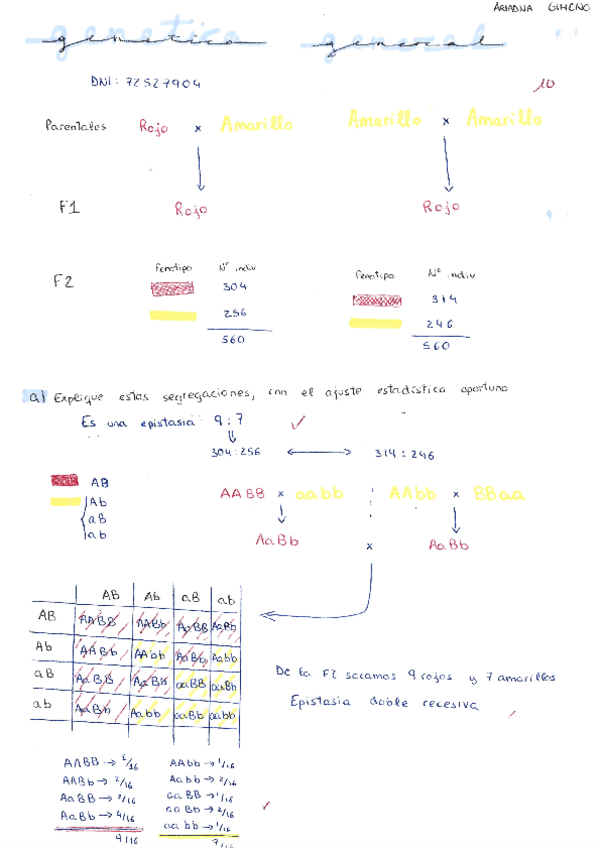 ARIADNA GIMENO
genetica general
DNI: 72527904
10
Parentales Rojo x Amarillo Amarillo x Amarillo
F1 Rojo Rojo
F2
Fenotipo Nº indiv Fenotipo Nº indiv
304 314
256 246
560 560
a) Explique estas segregaciones, con el ajuste estadístico oportuno
Es una epistasia 9:7
304:256 314:246
AB
Ab
aB
ab
AABB x aabb AAbb x BBaa
AaBb x AaBb
AB Ab aB ab
AB AABB AABb AaBB AaBb
Ab AABb AAbb AaBb Aabb
aB AaBB AaBb aaBB aaBb
ab AaBb Aabb aaBb aabb
De la F2 sacamos 9 rojos y 7 amarillos
Epistasia doble recesiva
AABB → 1/16 AAbb → 1/16
AABb → 2/16 Aabb → 2/16
AaBB → 2/16 aaBB → 1/16
AaBb → 4/16 aaBb → 2/16
aabb → 1/16
9/16 7/16